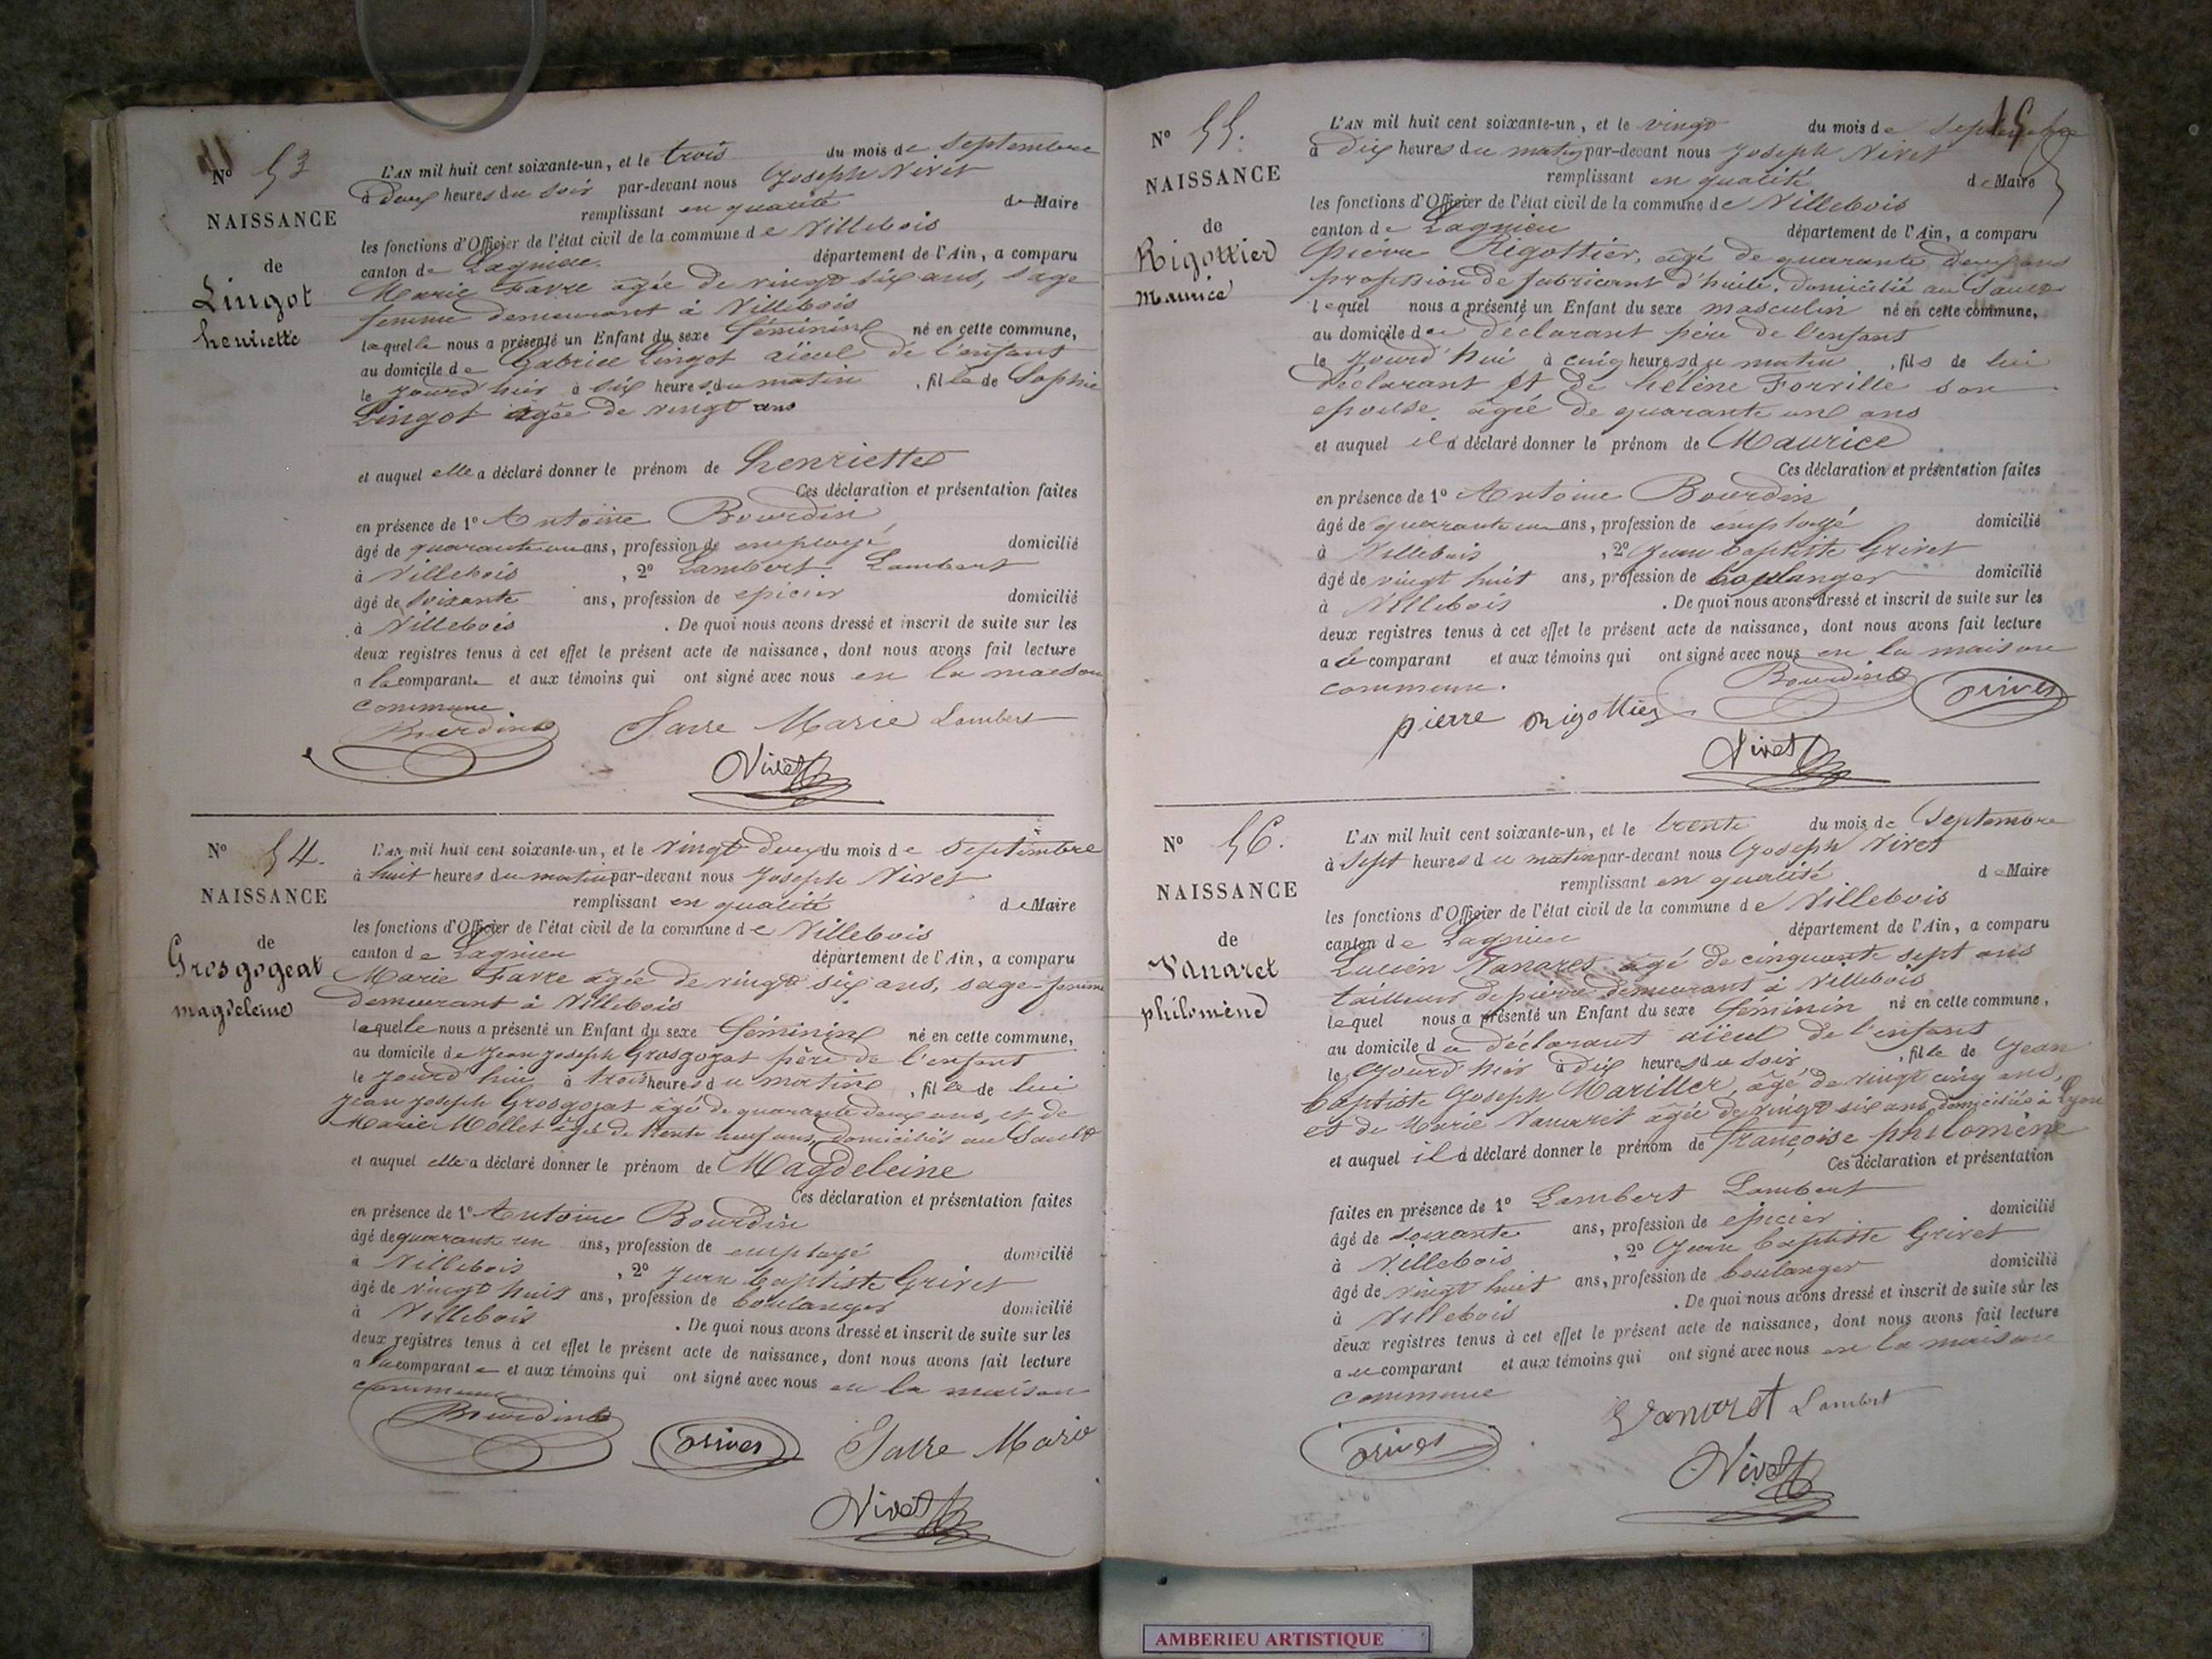 N° 53
NAISSANCE
de
Lingot
henriette
L'AN mil huit cent soixante-un, et le trois du mois de Septembre
à deux heures du soir par-devant nous Joseph Nivet
remplissant en qualité de Maire
les fonctions d'Officier de l'état civil de la commune de Villebois
canton de Lagnieu département de l'Ain, a comparu
Marie Favre agée de vingt six ans, sage
femme demeurant à Villebois
laquelle nous a présenté un Enfant du sexe féminin né en cette commune,
au domicile de Gabriel Lingot aïeul de l'enfant
le jourd'hui à six heures du matin, fille de Sophie
Lingot agée de vingt ans
et auquel elle a déclaré donner le prénom de henriette
Ces déclaration et présentation faites
en présence de 1° Antoine Bourdin
âgé de quarante un ans, profession de employé domicilié
à Villebois, 2° Lambert Lambert
âgé de soixante ans, profession de epicier domicilié
à Villebois. De quoi nous avons dressé et inscrit de suite sur les
deux registres tenus à cet effet le présent acte de naissance, dont nous avons fait lecture
a la comparante et aux témoins qui ont signé avec nous en la maison
commune.
Bourdin Favre Marie Lambert
Nivet
N° 54.
NAISSANCE
de
Grosgogeat
magdeleine
L'AN mil huit cent soixante-un, et le vingt deux du mois de Septembre
à huit heures du matin par-devant nous Joseph Nivet
remplissant en qualité de Maire
les fonctions d'Officier de l'état civil de la commune de Villebois
canton de Lagnieu département de l'Ain, a comparu
Marie Favre agée de vingt six ans, sage-femme
demeurant à Villebois
laquelle nous a présenté un Enfant du sexe féminin né en cette commune,
au domicile de Jean Joseph Grosgogat père de l'enfant
le jourd'hui à trois heures du matin, fille de lui
Jean Joseph Grosgogat agé de quarante deux ans, et de
Marie Mollet agée de trente neuf ans, domiciliés au Sault
et auquel elle a déclaré donner le prénom de Magdeleine
Ces déclaration et présentation faites
en présence de 1° Antoine Bourdin
âgé de quarante un ans, profession de employé domicilié
à Villebois, 2° Jean baptiste Grivet
âgé de vingt huit ans, profession de boulanger domicilié
à Villebois. De quoi nous avons dressé et inscrit de suite sur les
deux registres tenus à cet effet le présent acte de naissance, dont nous avons fait lecture
a la comparante et aux témoins qui ont signé avec nous en la maison
commune
Bourdin Grivet Favre Marie
Nivet
N° 55.
NAISSANCE
de
Rigottier
Maurice
L'AN mil huit cent soixante-un, et le vingt du mois de Septembre
à dix heures du matin par-devant nous Joseph Nivet
remplissant en qualité de Maire
les fonctions d'Officier de l'état civil de la commune de Villebois
canton de Lagnieu département de l'Ain, a comparu
pierre Rigottier, agé de quarante deux ans
profession de fabricant d'huile, domicilié au Sault
lequel nous a présenté un Enfant du sexe masculin né en cette commune,
au domicile du déclarant père de l'enfant
le jourd'hui à cinq heures du matin, fils de lui
déclarant et de helène Forville son
epouse agée de quarante un ans
et auquel il a déclaré donner le prénom de Maurice
Ces déclaration et présentation faites
en présence de 1° Antoine Bourdin
âgé de quarante un ans, profession de employé domicilié
à Villebois, 2° Jean baptiste Grivet
âgé de vingt huit ans, profession de boulanger domicilié
à Villebois. De quoi nous avons dressé et inscrit de suite sur les
deux registres tenus à cet effet le présent acte de naissance, dont nous avons fait lecture
a le comparant et aux témoins qui ont signé avec nous en la maison
commune.
Bourdin Grivet
pierre rigottier
Nivet
N° 56.
NAISSANCE
de
Vanaret
philomène
L'AN mil huit cent soixante-un, et le trente du mois de Septembre
à sept heures du matin par-devant nous Joseph Nivet
remplissant en qualité de Maire
les fonctions d'Officier de l'état civil de la commune de Villebois
canton de Lagnieu département de l'Ain, a comparu
Lucien Vanaret agé de cinquante sept ans
tailleur de pierre demeurant à Villebois
lequel nous a présenté un Enfant du sexe féminin né en cette commune,
au domicile du déclarant aïeul de l'enfant
le jourd'hier à dix heures du soir, fille de Jean
baptiste Joseph Mariller, agé de vingt cinq ans,
et de Marie Vanaret agée de vingt six ans domiciliés à Lyon
et auquel il a déclaré donner le prénom de françoise philomène
Ces déclaration et présentation
faites en présence de 1° Lambert Lambert
âgé de soixante ans, profession de epicier domicilié
à Villebois, 2° Jean baptiste Grivet
âgé de vingt huit ans, profession de boulanger domicilié
à Villebois. De quoi nous avons dressé et inscrit de suite sûr les
deux registres tenus à cet effet le présent acte de naissance, dont nous avons fait lecture
a u comparant et aux témoins qui ont signé avec nous en la maison
commune
Vanaret Lambert
Grivet
Nivet
AMBERIEU ARTISTIQUE